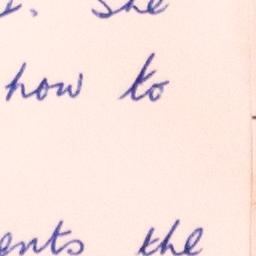 . She
how to
ents the